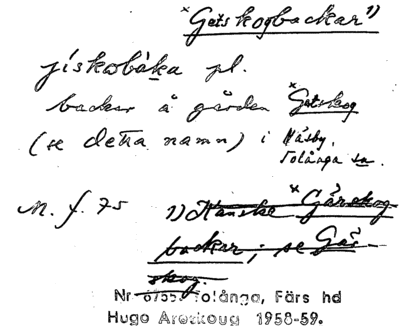 ˣGetskogbackar¹⁾
jiskobáka pl.
backar å gården ˣGetskog
(se detta namn) i Måsby,
Tolånga sn.
M. f. 75 1) Kanske ˣGårskog-
backar; se Går-
skog.
Nr 6755 Tolånga, Färs hd
Hugo Areskoug 1958-59.